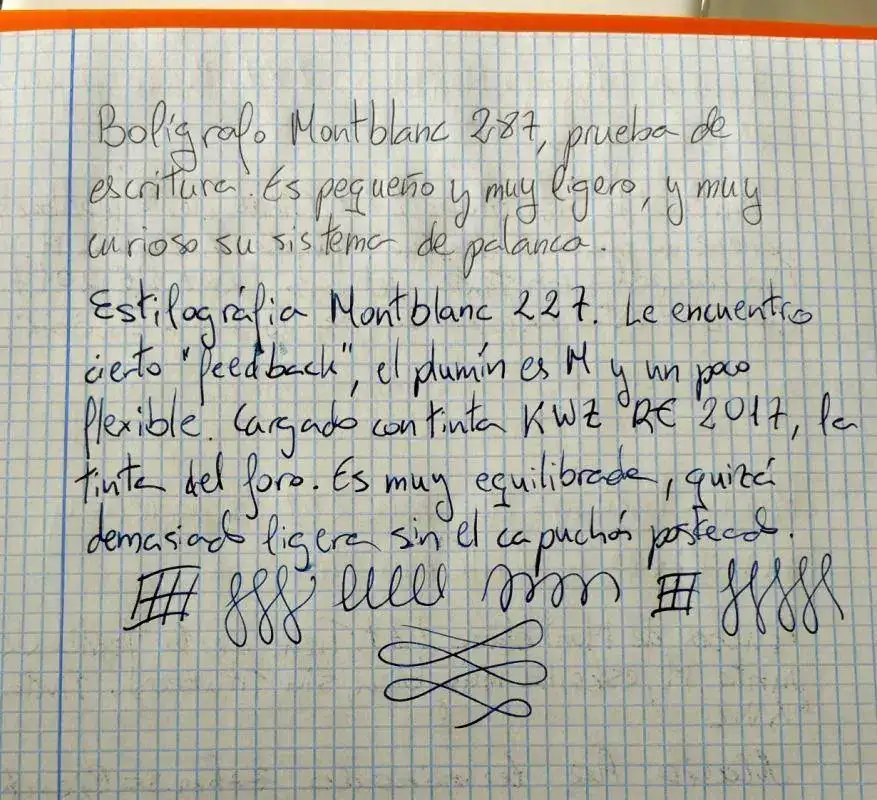 Bolígrafo Montblanc 287, prueba de
escritura. Es pequeño y muy ligero, y muy
curioso su sistema de palanca.
Estilográfia Montblanc 227. Le encuentro
cierto "feedback", el plumín es M y un poco
flexible. Cargado con tinta KWZ RE 2017, la
tinta del foro. Es muy equilibrada, quizá
demasiado ligera sin el capuchón posteado.